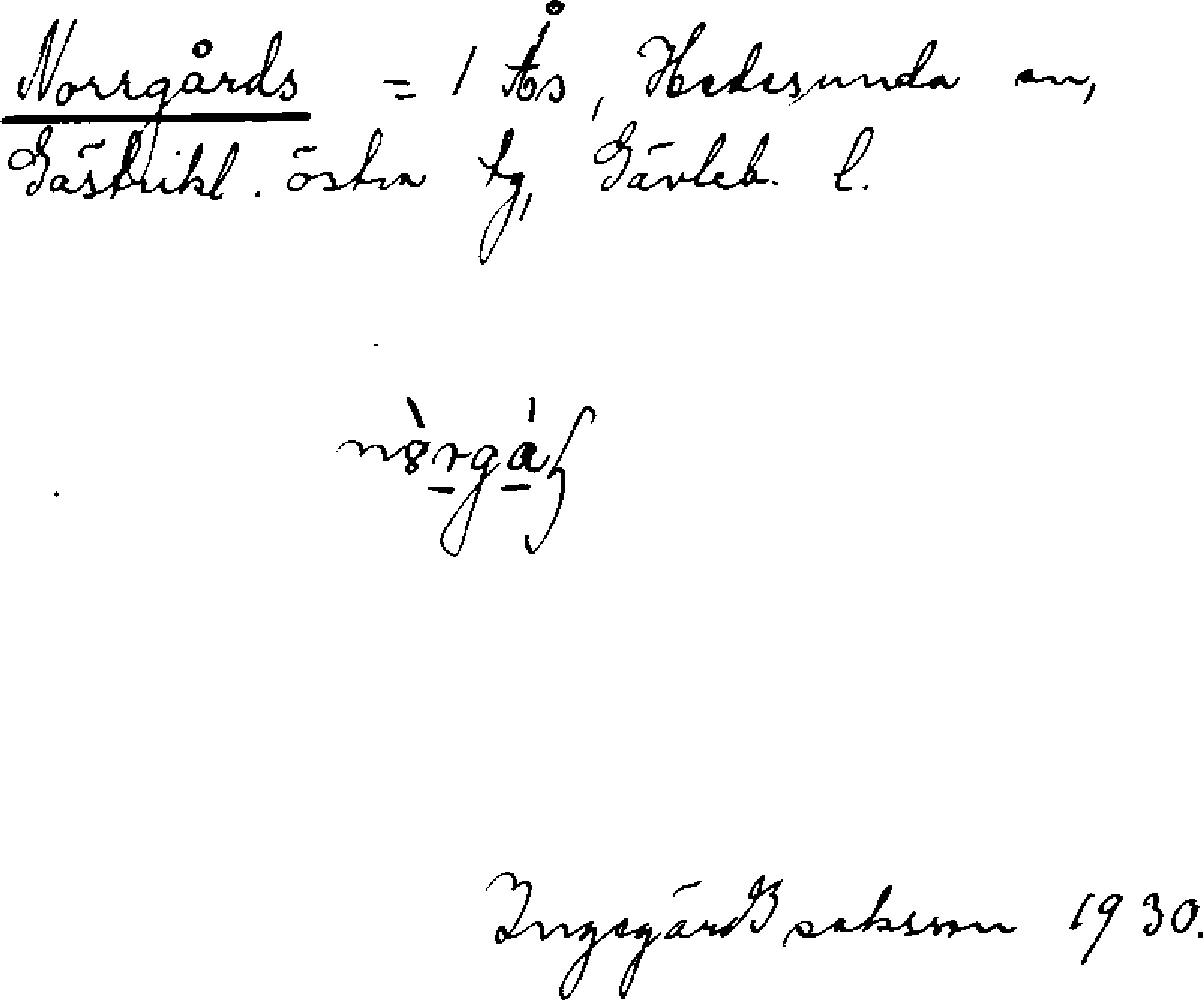 Norrgårds = 1 Ås, Hedesunda sn,
Gästrikl. östra tg, Gävleb. l.
Ingegärd 1930.